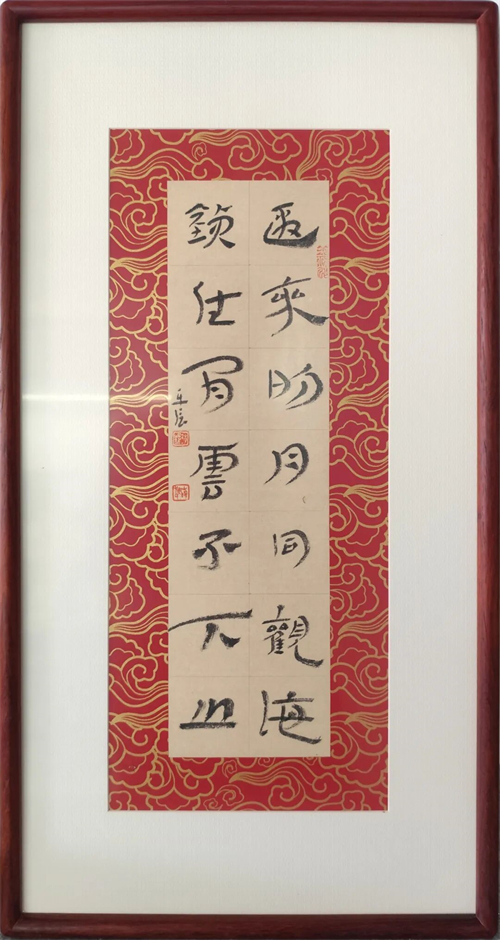 邀來明月同觀海
鎖住閒雲不下山